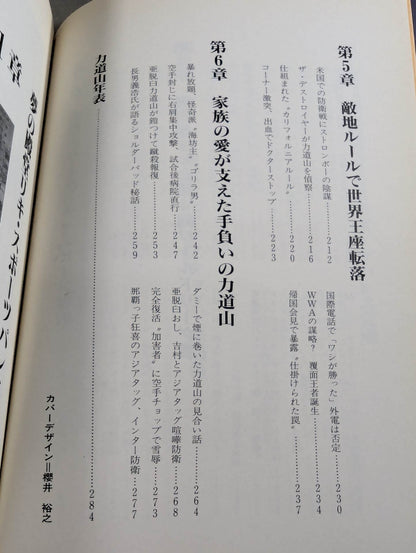 第5章　敵地ルールで世界王座転落
米国での防衛戦にストロンボーの陰謀……212
ザ・デストロイヤーが力道山を偵察……216
仕組まれた“カリフォルニアルール”……220
コーナー激突、出血でドクターストップ……223
国際電話で「ワシが勝った」外電は否定……230
WWAの謀略？　覆面王者誕生……234
帰国会見で暴露“仕掛けられた罠”……237
第6章　家族の愛が支えた手負いの力道山
暴れ放題、怪奇派“海坊主”“ゴリラ男”……242
空手封じに右肩集中攻撃、試合後病院直行……247
亜脱臼力道山が鎧つけて蹴殺報復……253
長男義浩氏が語るショルダーパッド秘話……259
ダミーで煙に巻いた力道山の見合い話……264
亜脱臼おし、吉村とアジアタッグ喧嘩防衛……268
完全復活“加害者”に空手チョップで雪辱……273
那覇っ子狂喜のアジアタッグ、インター防衛……277
力道山年表……284
カバーデザイン＝櫻井　裕之
章
リキ・スポーツパレ